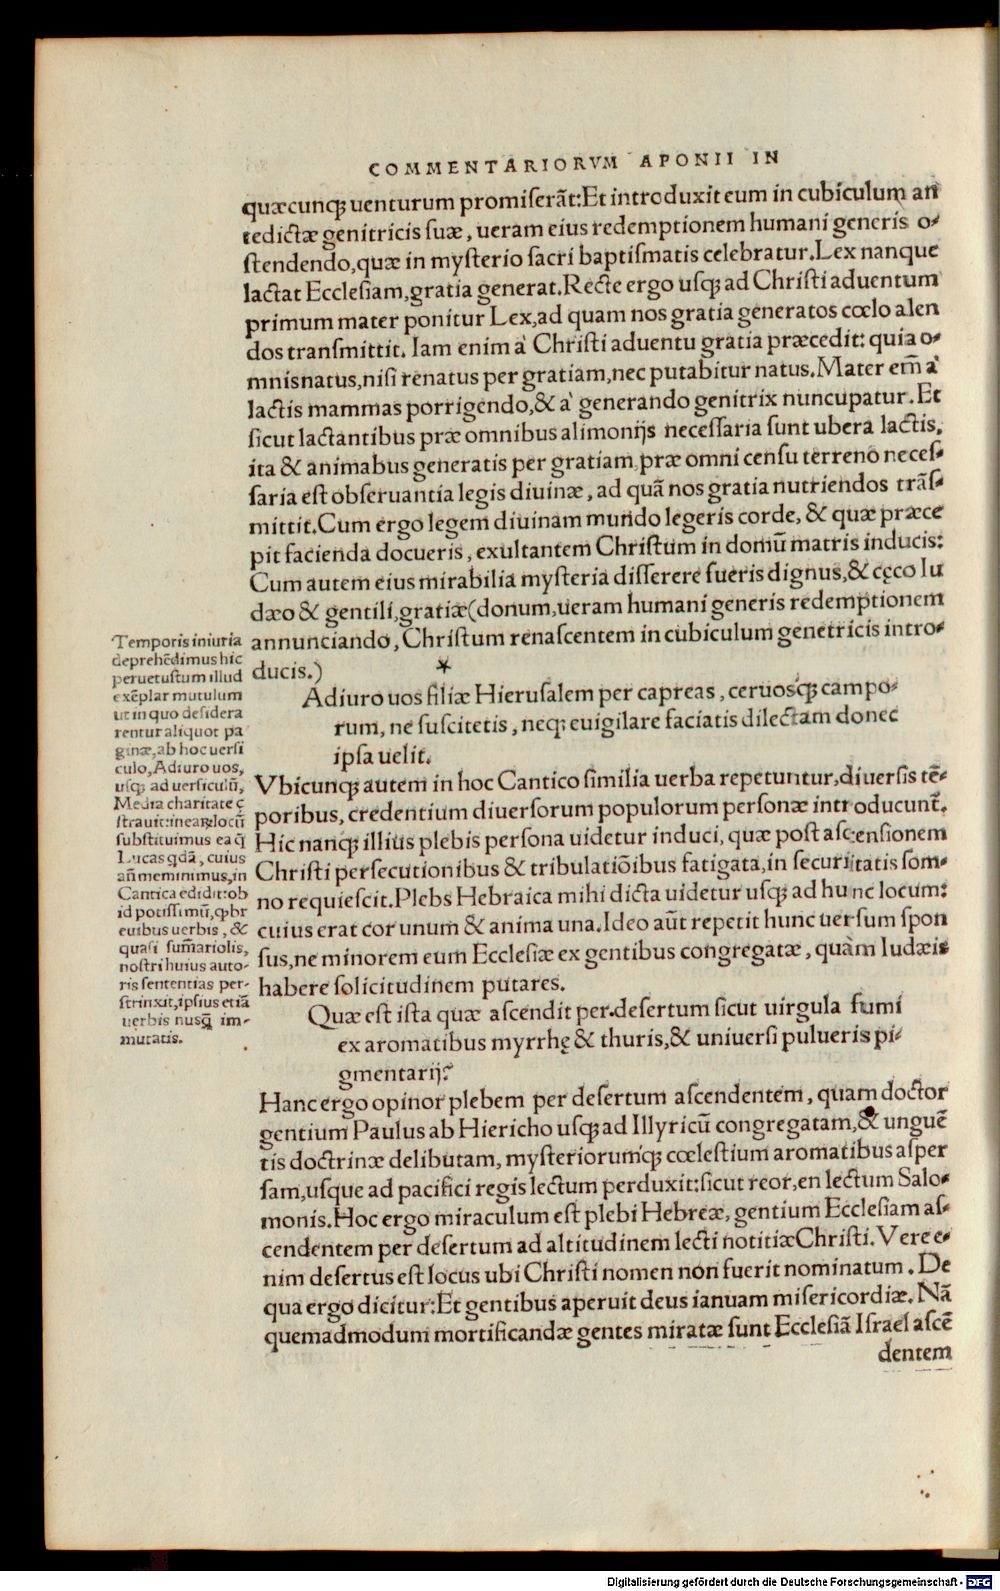 COMMENTARIORVM APONII IN
quæcunq; uenturum promiserãt: Et introduxit eum in cubiculum an
tedictæ genitricis suæ, ueram eius redemptionem humani generis o-
stendendo, quæ in mysterio sacri baptismatis celebratur. Lex nanque
lactat Ecclesiam, gratia generat. Recte ergo usq; ad Christi aduentum
primum mater ponitur Lex, ad quam nos gratia generatos cœlo alen
dos transmittit. Iam enim à Christi aduentu gratia præcedit: quia o-
mnis natus, nisi renatus per gratiam, nec putabitur natus. Mater em̃ à
lactis mammas porrigendo, & à generando genitrix nuncupatur. Et
sicut lactantibus præ omnibus alimonijs necessaria sunt ubera lactis,
ita & animabus generatis per gratiam, præ omni censu terreno neces-
saria est obseruantia legis diuinæ, ad quã nos gratia nutriendos trãs-
mittit. Cum ergo legem diuinam mundo legeris corde, & quæ præce
pit facienda docueris, exultantem Christum in domũ matris inducis:
Cum autem eius mirabilia mysteria disserere fueris dignus, & cęco Iu
dæo & gentili, gratiæ (donum, ueram humani generis redemptionem
annunciando, Christum renascentem in cubiculum genetricis intro-
ducis.)
*
Adiuro uos filiæ Hierusalem per capreas, ceruosq́; campo-
rum, ne suscitetis, neq; euigilare faciatis dilectam donec
ipsa uelit.
Vbicunq; autem in hoc Cantico similia uerba repetuntur, diuersis tẽ-
poribus, credentium diuersorum populorum personæ introducunt̃.
Hic nanq; illius plebis persona uidetur induci, quæ post ascensionem
Christi persecutionibus & tribulatiõibus fatigata, in securitatis som-
no requiescit. Plebs Hebraica mihi dicta uidetur usq; ad hunc locum:
cuius erat cor unum & anima una. Ideo aũt repetit hunc uersum spon
sus, ne minorem eum Ecclesiæ ex gentibus congregatæ, quàm Iudæis
habere solicitudinem putares.
Quæ est ista quæ ascendit per desertum sicut uirgula fumi
ex aromatibus myrrhę & thuris, & uniuersi pulueris pi-
gmentarij?
Hanc ergo opinor plebem per desertum ascendentem, quam doctor
gentium Paulus ab Hiericho usq; ad Illyricũ congregatam, & unguẽ
tis doctrinæ delibutam, mysteriorumq́; cœlestium aromatibus asper
sam, usque ad pacifici regis lectum perduxit: sicut reor, en lectum Salo-
monis. Hoc ergo miraculum est plebi Hebreæ, gentium Ecclesiam as-
cendentem per desertum ad altitudinem lecti notitiæ Christi. Vere e-
nim desertus est locus ubi Christi nomen non fuerit nominatum. De
qua ergo dicitur: Et gentibus aperuit deus ianuam misericordiæ. Nã
quemadmodum mortificandæ gentes miratæ sunt Ecclesiã Israel ascẽ
dentem
Temporis iniuria
deprehẽdimus hic
peruetustum illud
exẽplar mutulum
ut in quo desidera
rentur aliquot pa
ginæ, ab hoc uersi
culo, Adiuro uos,
usq; ad uersiculũ,
Media charitate ç
strauit: in earꝝ locũ
substituimus ea q̃
Lucas qdã, cuius
añ meminimus, in
Cantica edidit: ob
id potissimũ, ꝙ br
euibus uerbis, &
quasi sum̃ariolis,
nostri huius auto-
ris sententias per-
strinxit, ipsius etiã
uerbis nusq̃ im-
mutatis.
Digitalisierung gefördert durch die Deutsche Forschungsgemeinschaft - DFG